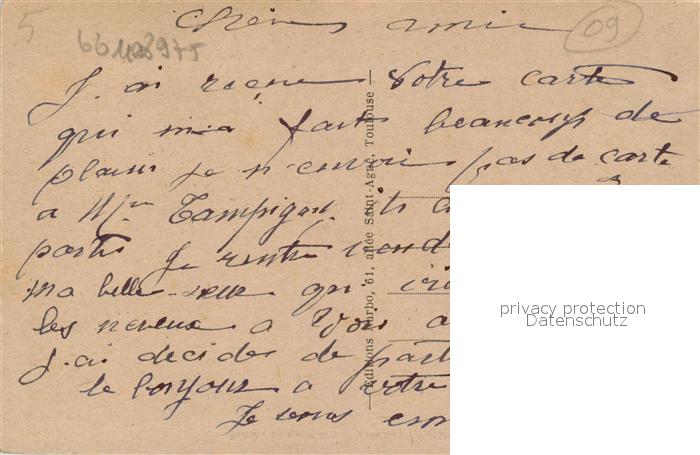 5
09
66108975
Chère amie
J. ai recue Votre carte
qui m'a fait beaucoup de
plaisir je n'envoie pas de carte
a Mme Tampigny. ils
partis Je rentre vend
ma belle-seur qui
les neveux a Voir a
J.ai decides de part
le bonjour a votre
Je vous em
Editions Narbo, 61, allée Saint-Agne, Toulouse
privacy protection
Datenschutz